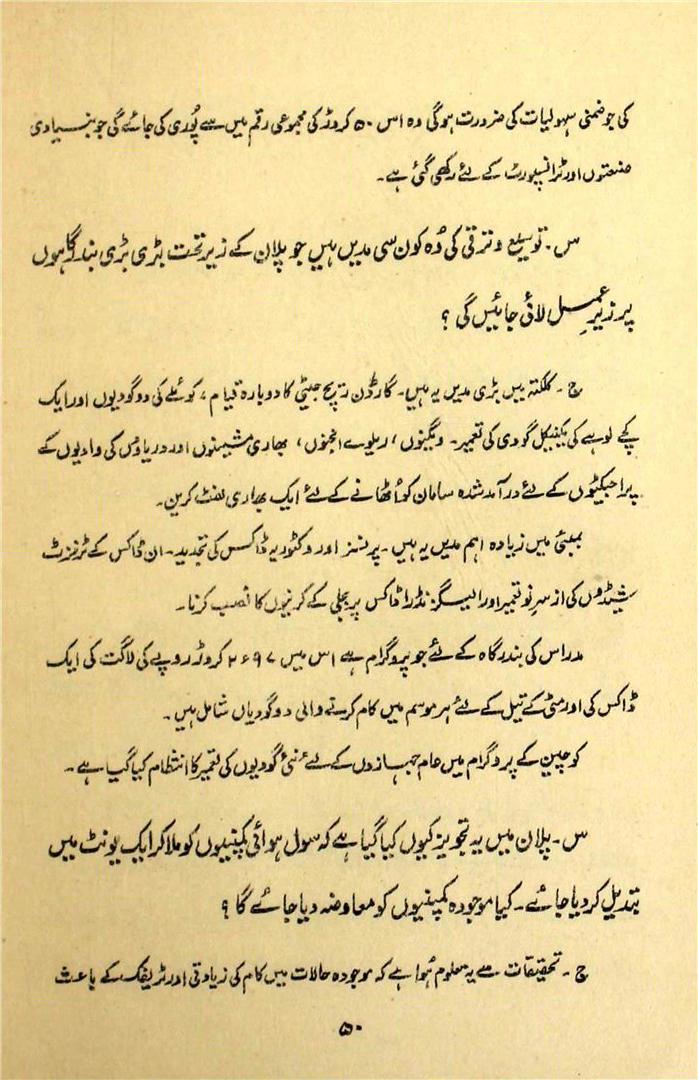 کی جو ضمنی سہولیات کی ضرورت ہوگی وہ اس ۵۰ کروڑ کی مجموعی رقم میں سے پُوری کی جائے گی جو بنیادی
صنعتوں اور ٹرانسپورٹ کے لئے رکھی گئی ہے۔
س۔ توسیع و ترقی کی وُہ کون سی مدیں ہیں جو پلان کے زیر تحت بڑی بڑی بندرگاہوں
پر زیرِ عمل لائی جائیں گی ؟
ج۔ کلکتہ میں بڑی مدیں یہ ہیں۔ گارڈن ریچ جیٹی کا دوبارہ قیام، کوئلے کی دو گودیوں اور ایک
کچے لوہے کی میکنیکل گودی کی تعمیر۔ ویگنوں، ریلوے انجنوں، بھاری مشینوں اور دریاؤں کی وادیوں کے
پراجیکٹوں کے لئے درآمد شدہ سامان کو اُٹھانے کے لئے ایک بھاری لفٹ کرین۔
بمبئی میں زیادہ اہم مدیں یہ ہیں۔ پرنسز اور وکٹوریہ ڈاکس کی تجدید۔ ان ڈاکس کے ٹرنزٹ
شیڈوں کی از سرِ نو تعمیر اور الیگزنڈرا ڈاکس پر بجلی کے کرینوں کا نصب کرنا۔
مدراس کی بندرگاہ کے لئے جو پروگرام ہے اس میں ۲ء۶۹۷ کروڑ روپے کی لاگت کی ایک
ڈاکس کی اور مٹی کے تیل کے لئے ہر موسم میں کام کرنے والی دو گودیاں شامل ہیں۔
کوچین کے پروگرام میں عام جہازوں کے لئے نئی گودیوں کی تعمیر کا انتظام کیا گیا ہے۔
س۔ پلان میں یہ تجویز کیوں کیا گیا ہے کہ سول ہوائی کمپنیوں کو ملا کر ایک یونٹ میں
تبدیل کر دیا جائے۔ کیا موجودہ کمپنیوں کو معاوضہ دیا جائے گا ؟
ج۔ تحقیقات سے یہ معلوم ہُوا ہے کہ موجودہ حالات میں کام کی زیادتی اور ٹریفک کے باعث
۵۰